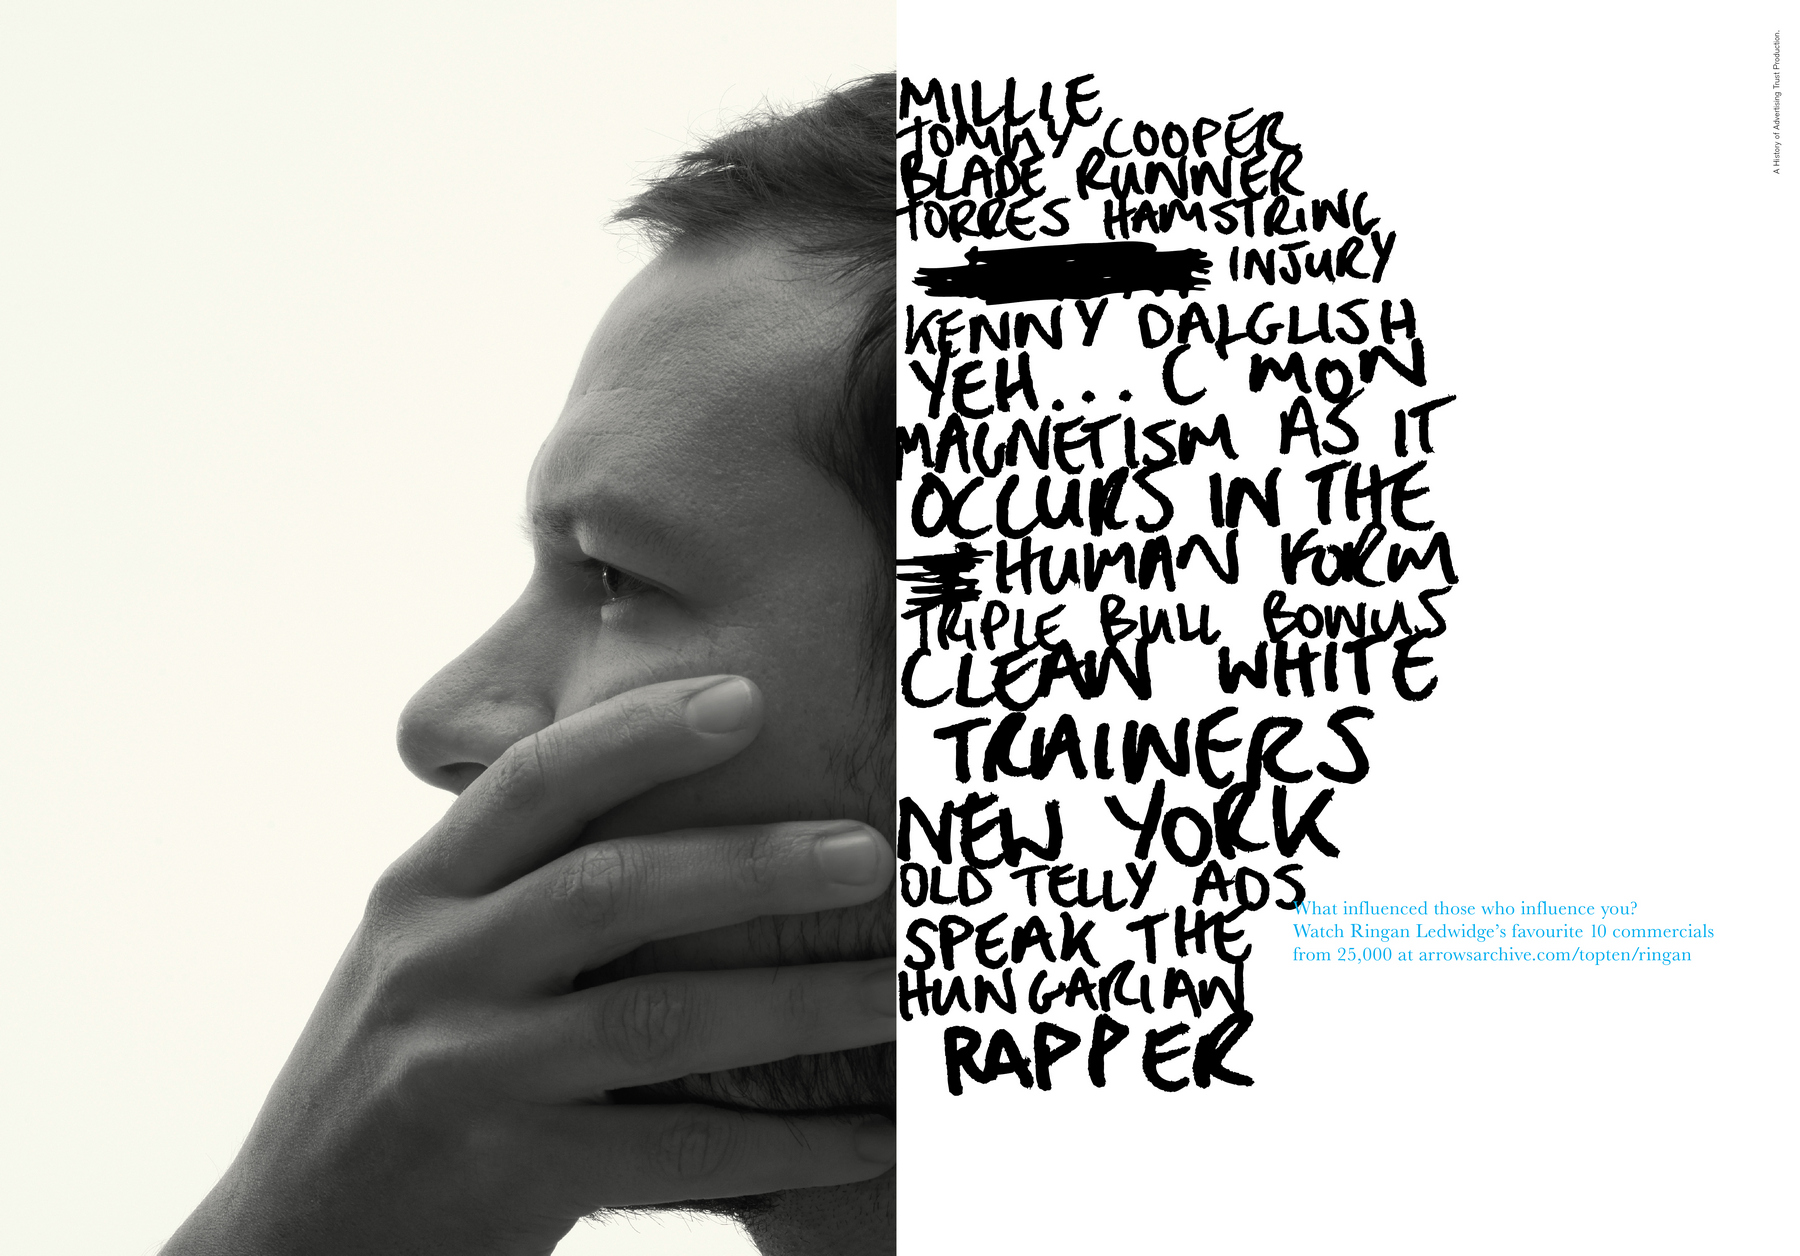 MILLIE
TOMMY COOPER
BLADE RUNNER
TORRES HAMSTRING
INJURY
KENNY DALGLISH
YEH... C'MON
MAGNETISM AS IT
OCCURS IN THE
HUMAN FORM
TRIPLE BULL BONUS
CLEAN WHITE
TRAINERS
NEW YORK
OLD TELLY ADS
SPEAK THE
HUNGARIAN
RAPPER
What influenced those who influence you?
Watch Ringan Ledwidge's favourite 10 commercials
from 25,000 at arrowsarchive.com/topten/ringan
A History of Advertising Trust Production.